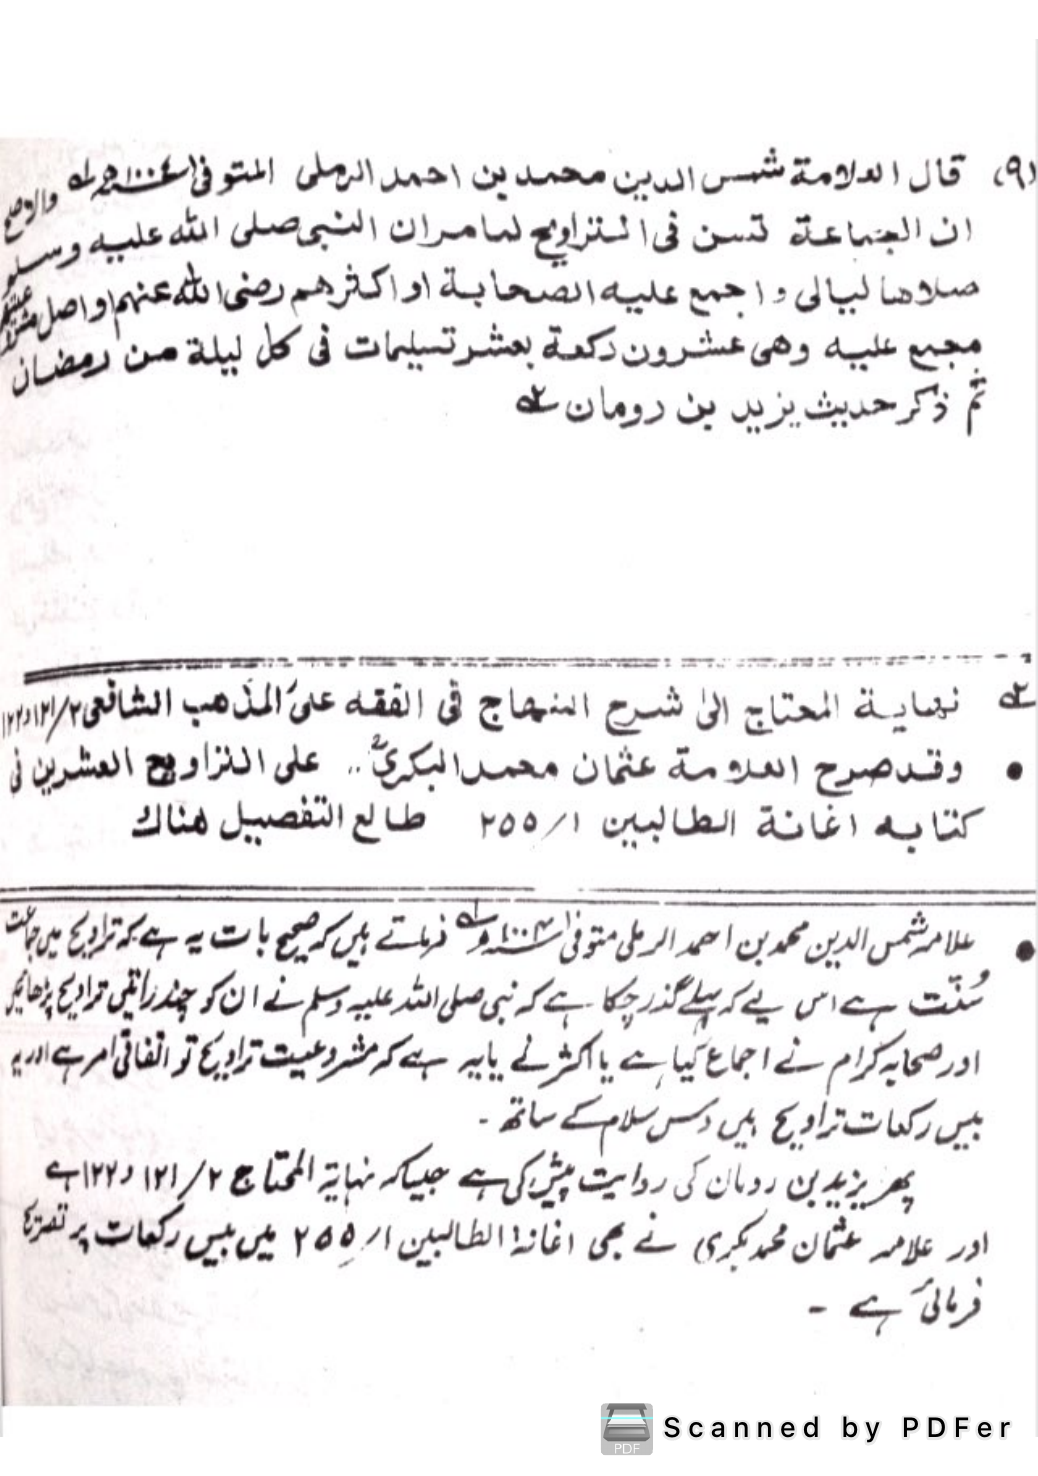 (۹) قال العلامة شمس الدين محمد بن احمد الرملى المتوفى ۱۰۰٤ والاصح
ان الجماعة تسن فى التراويح لما مر ان النبى صلى الله عليه وسلم
صلاها ليالى و اجمع عليه الصحابة او اكثرهم رضى الله عنهم او اصل مشروعيتها
مجمع عليه وهى عشرون ركعة بعشر تسليمات فى كل ليلة من رمضان
ثم ذكر حديث يزيد بن رومان
نهاية المحتاج الى شرح المنهاج فى الفقه على المذهب الشافعى ۲/۱۲۱ و ۱۲۲
• وقد صرح العلامة عثمان محمد البكرىؒ .. على التراويح العشرين فى
كتابه اغانة الطالبين ۱/۲۵۵ طالع التفصيل هناك
• علامہ شمس الدین محمد بن احمد الرملی متوفی ۱۰۰۴ فرماتے ہیں کہ صحیح بات یہ ہے کہ تراویح میں جماعت
سُنّت ہے اس لیے کہ پہلے گذر چکا ہے کہ نبی صلی اللہ علیہ وسلم نے ان کو چند راتیں تراویح پڑھائیں
اور صحابہ کرام نے اجماع کیا ہے یا اکثر نے یا یہ ہے کہ مشروعیت تراویح تو اتفاقی امر ہے اور یہ
بیس رکعات تراویح ہیں دس سلام کے ساتھ ۔
پھر یزید بن رومان کی روایت پیش کی ہے جیسا کہ نہایۃ المحتاج ۲/۱۲۱ و ۱۲۲ ہے
اور علامہ عثمان محمد بکری نے بھی اغانۃ الطالبین ۱/۲۵۵ میں بیس رکعات پر تصریح
فرمائی ہے ۔
Scanned by PDFer
PDF